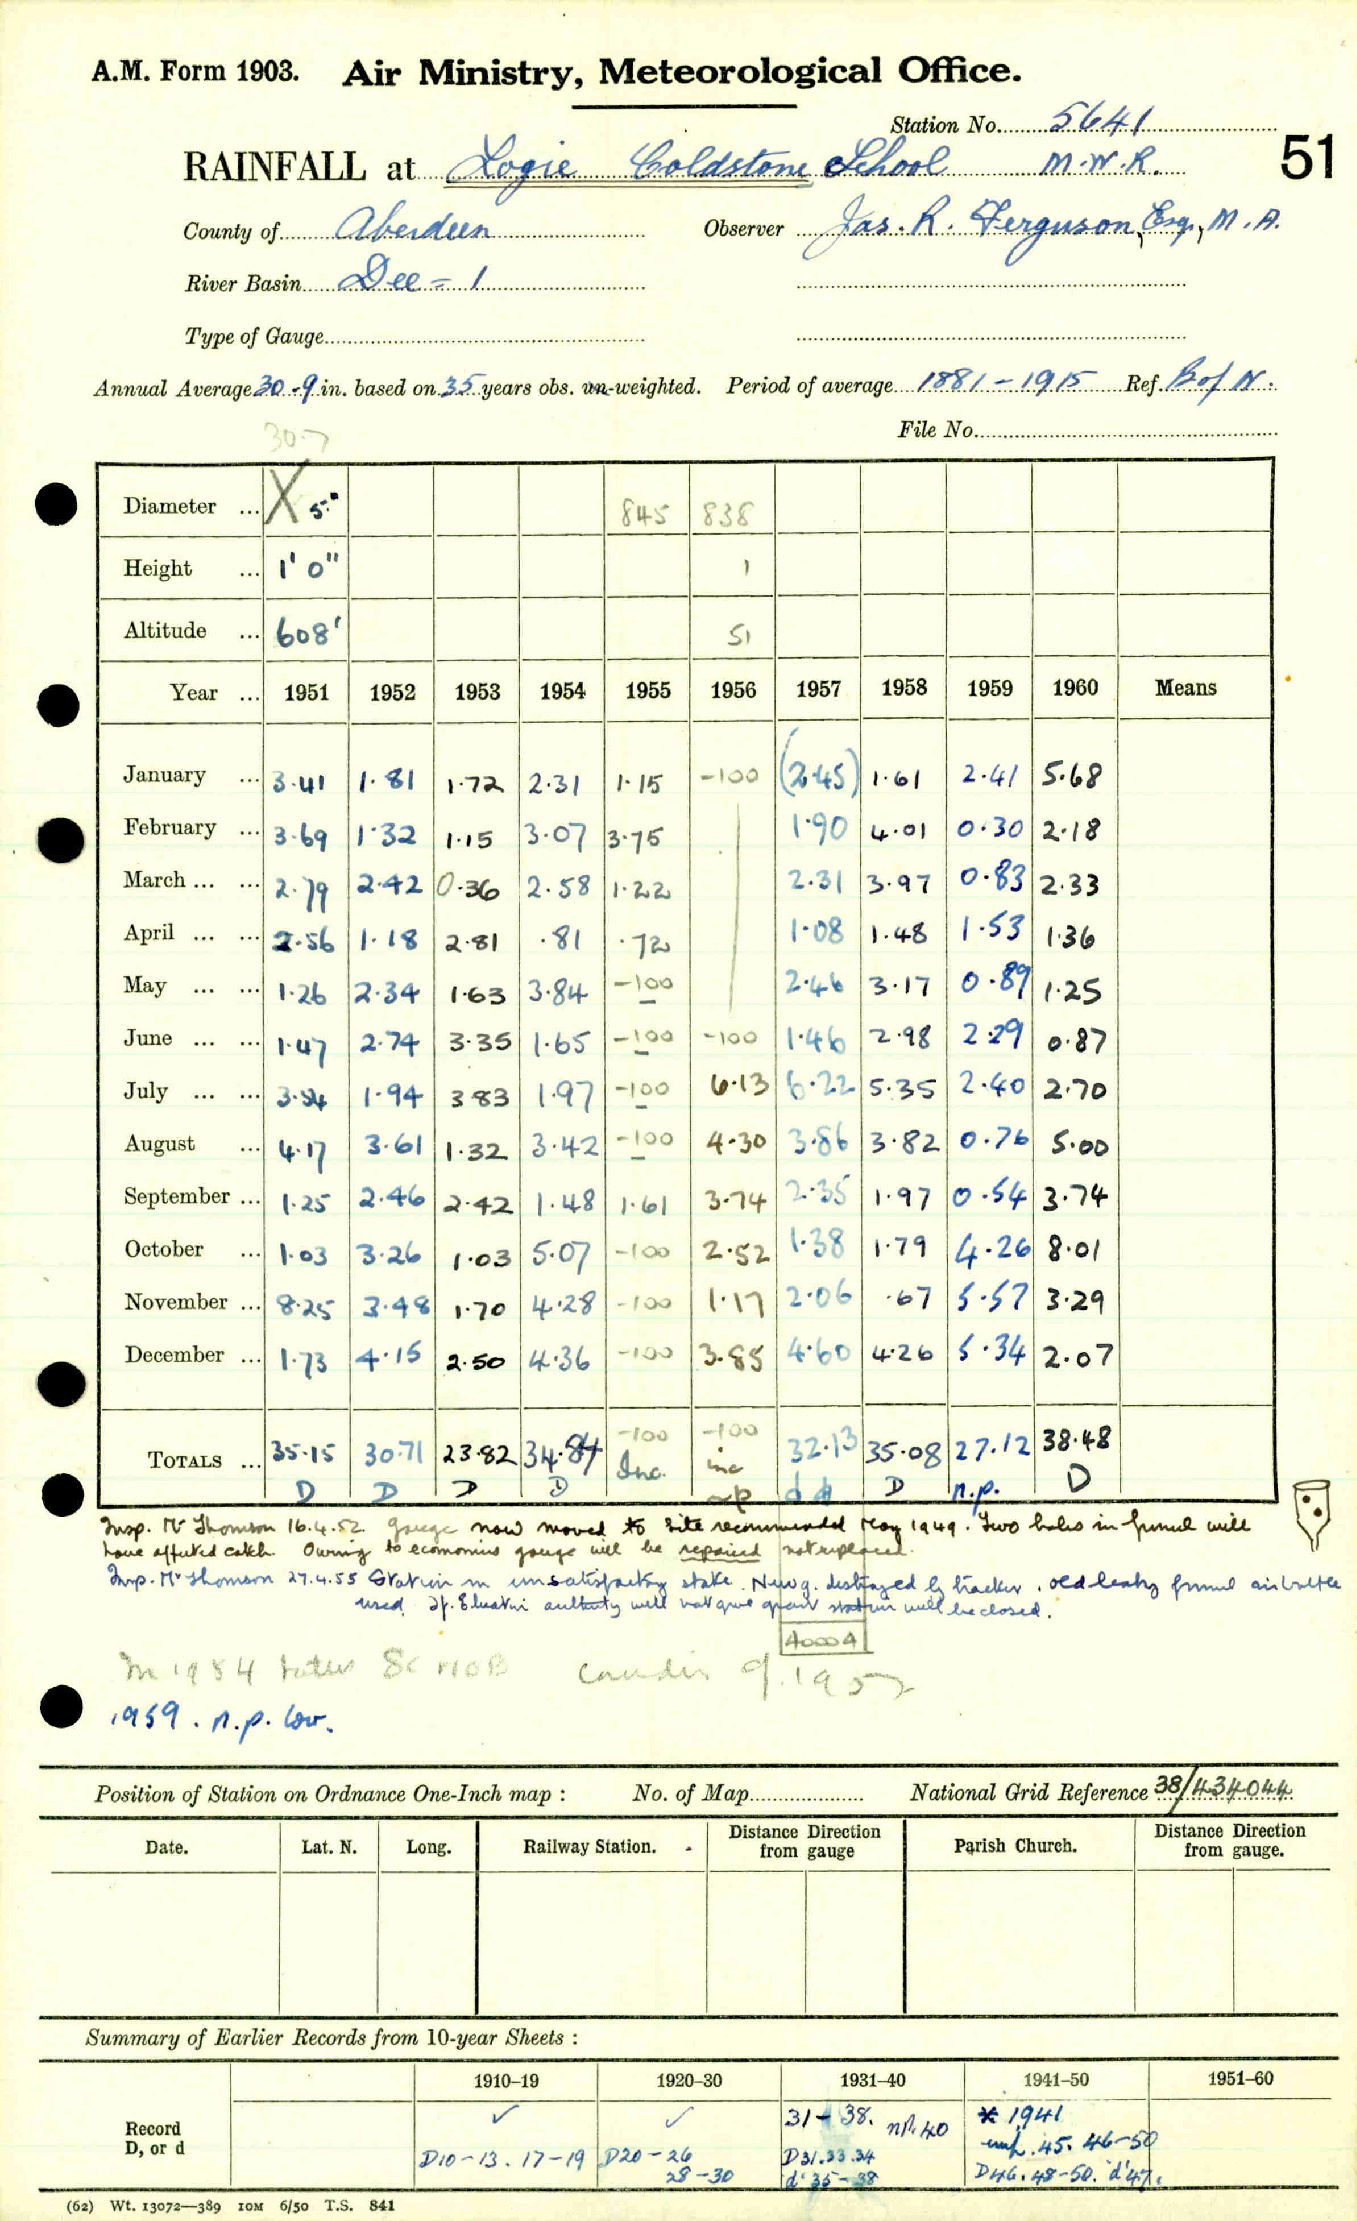 A.M. Form 1903. Air Ministry, Meteorological Office.
Station No. 5641
RAINFALL at Logie Coldstone School M.W.R. 51
County of Aberdeen Observer Jas. R. Ferguson, Esq., M.A.
River Basin Dee = 1
Type of Gauge
Annual Average 30.9 in. based on 35 years obs. un-weighted. Period of average 1881-1915 Ref. B of N.
30.7
File No.
Diameter ... X 5" 845 838
Height ... 1' 0" 1
Altitude ... 608' 51
Year ... 1951 1952 1953 1954 1955 1956 1957 1958 1959 1960 Means
January ... 3.41 1.81 1.72 2.31 1.15 -100 (2.45) 1.61 2.41 5.68
February ... 3.69 1.32 1.15 3.07 3.75 1.90 4.01 0.30 2.18
March ... ... 2.79 2.42 0.36 2.58 1.22 2.31 3.97 0.83 2.33
April ... ... 2.56 1.18 2.81 .81 .72 1.08 1.48 1.53 1.36
May ... ... 1.26 2.34 1.63 3.84 -100 2.46 3.17 0.89 1.25
June ... ... 1.47 2.74 3.35 1.65 -100 -100 1.46 2.98 2.29 0.87
July ... ... 3.54 1.94 3.83 1.97 -100 6.13 6.22 5.35 2.40 2.70
August ... 4.17 3.61 1.32 3.42 -100 4.30 3.86 3.82 0.76 5.00
September ... 1.25 2.46 2.42 1.48 1.61 3.74 2.35 1.97 0.54 3.74
October ... 1.03 3.26 1.03 5.07 -100 2.52 1.38 1.79 4.26 8.01
November ... 8.25 3.48 1.70 4.28 -100 1.17 2.06 .67 5.57 3.29
December ... 1.73 4.15 2.50 4.36 -100 3.85 4.60 4.26 5.34 2.07
TOTALS ... 35.15 30.71 23.82 34.84 -100 -100 32.13 35.08 27.12 38.48
D D D D Inc. inc d D n.p. D
Insp. Mr Thomson 16.4.52 gauge now moved to site recommended May 1949. Two holes in funnel will
have affected catch. Owing to economies gauge will be repaired not replaced.
Insp. Mr Thomson 27.4.55 Station in unsatisfactory state. New g. destroyed by tractor. old leaky funnel and bottle
used. If Education authority will not give grant station will be closed.
40004
In 1954
1959. n.p. low.
Position of Station on Ordnance One-Inch map : No. of Map National Grid Reference 38/434044
Date. Lat. N. Long. Railway Station. Distance Direction from gauge Parish Church. Distance Direction from gauge.
Summary of Earlier Records from 10-year Sheets :
1910–19 1920–30 1931–40 1941–50 1951–60
Record ✓ ✓ 31-38. n.p. 40 * 1941
D, or d 45. 46-50
D10-13. 17-19 D20-26 D31.33.34 D46.48-50. 'd'47.
28-30 'd' 35-38
(62) Wt. 13072—389 10M 6/50 T.S. 841